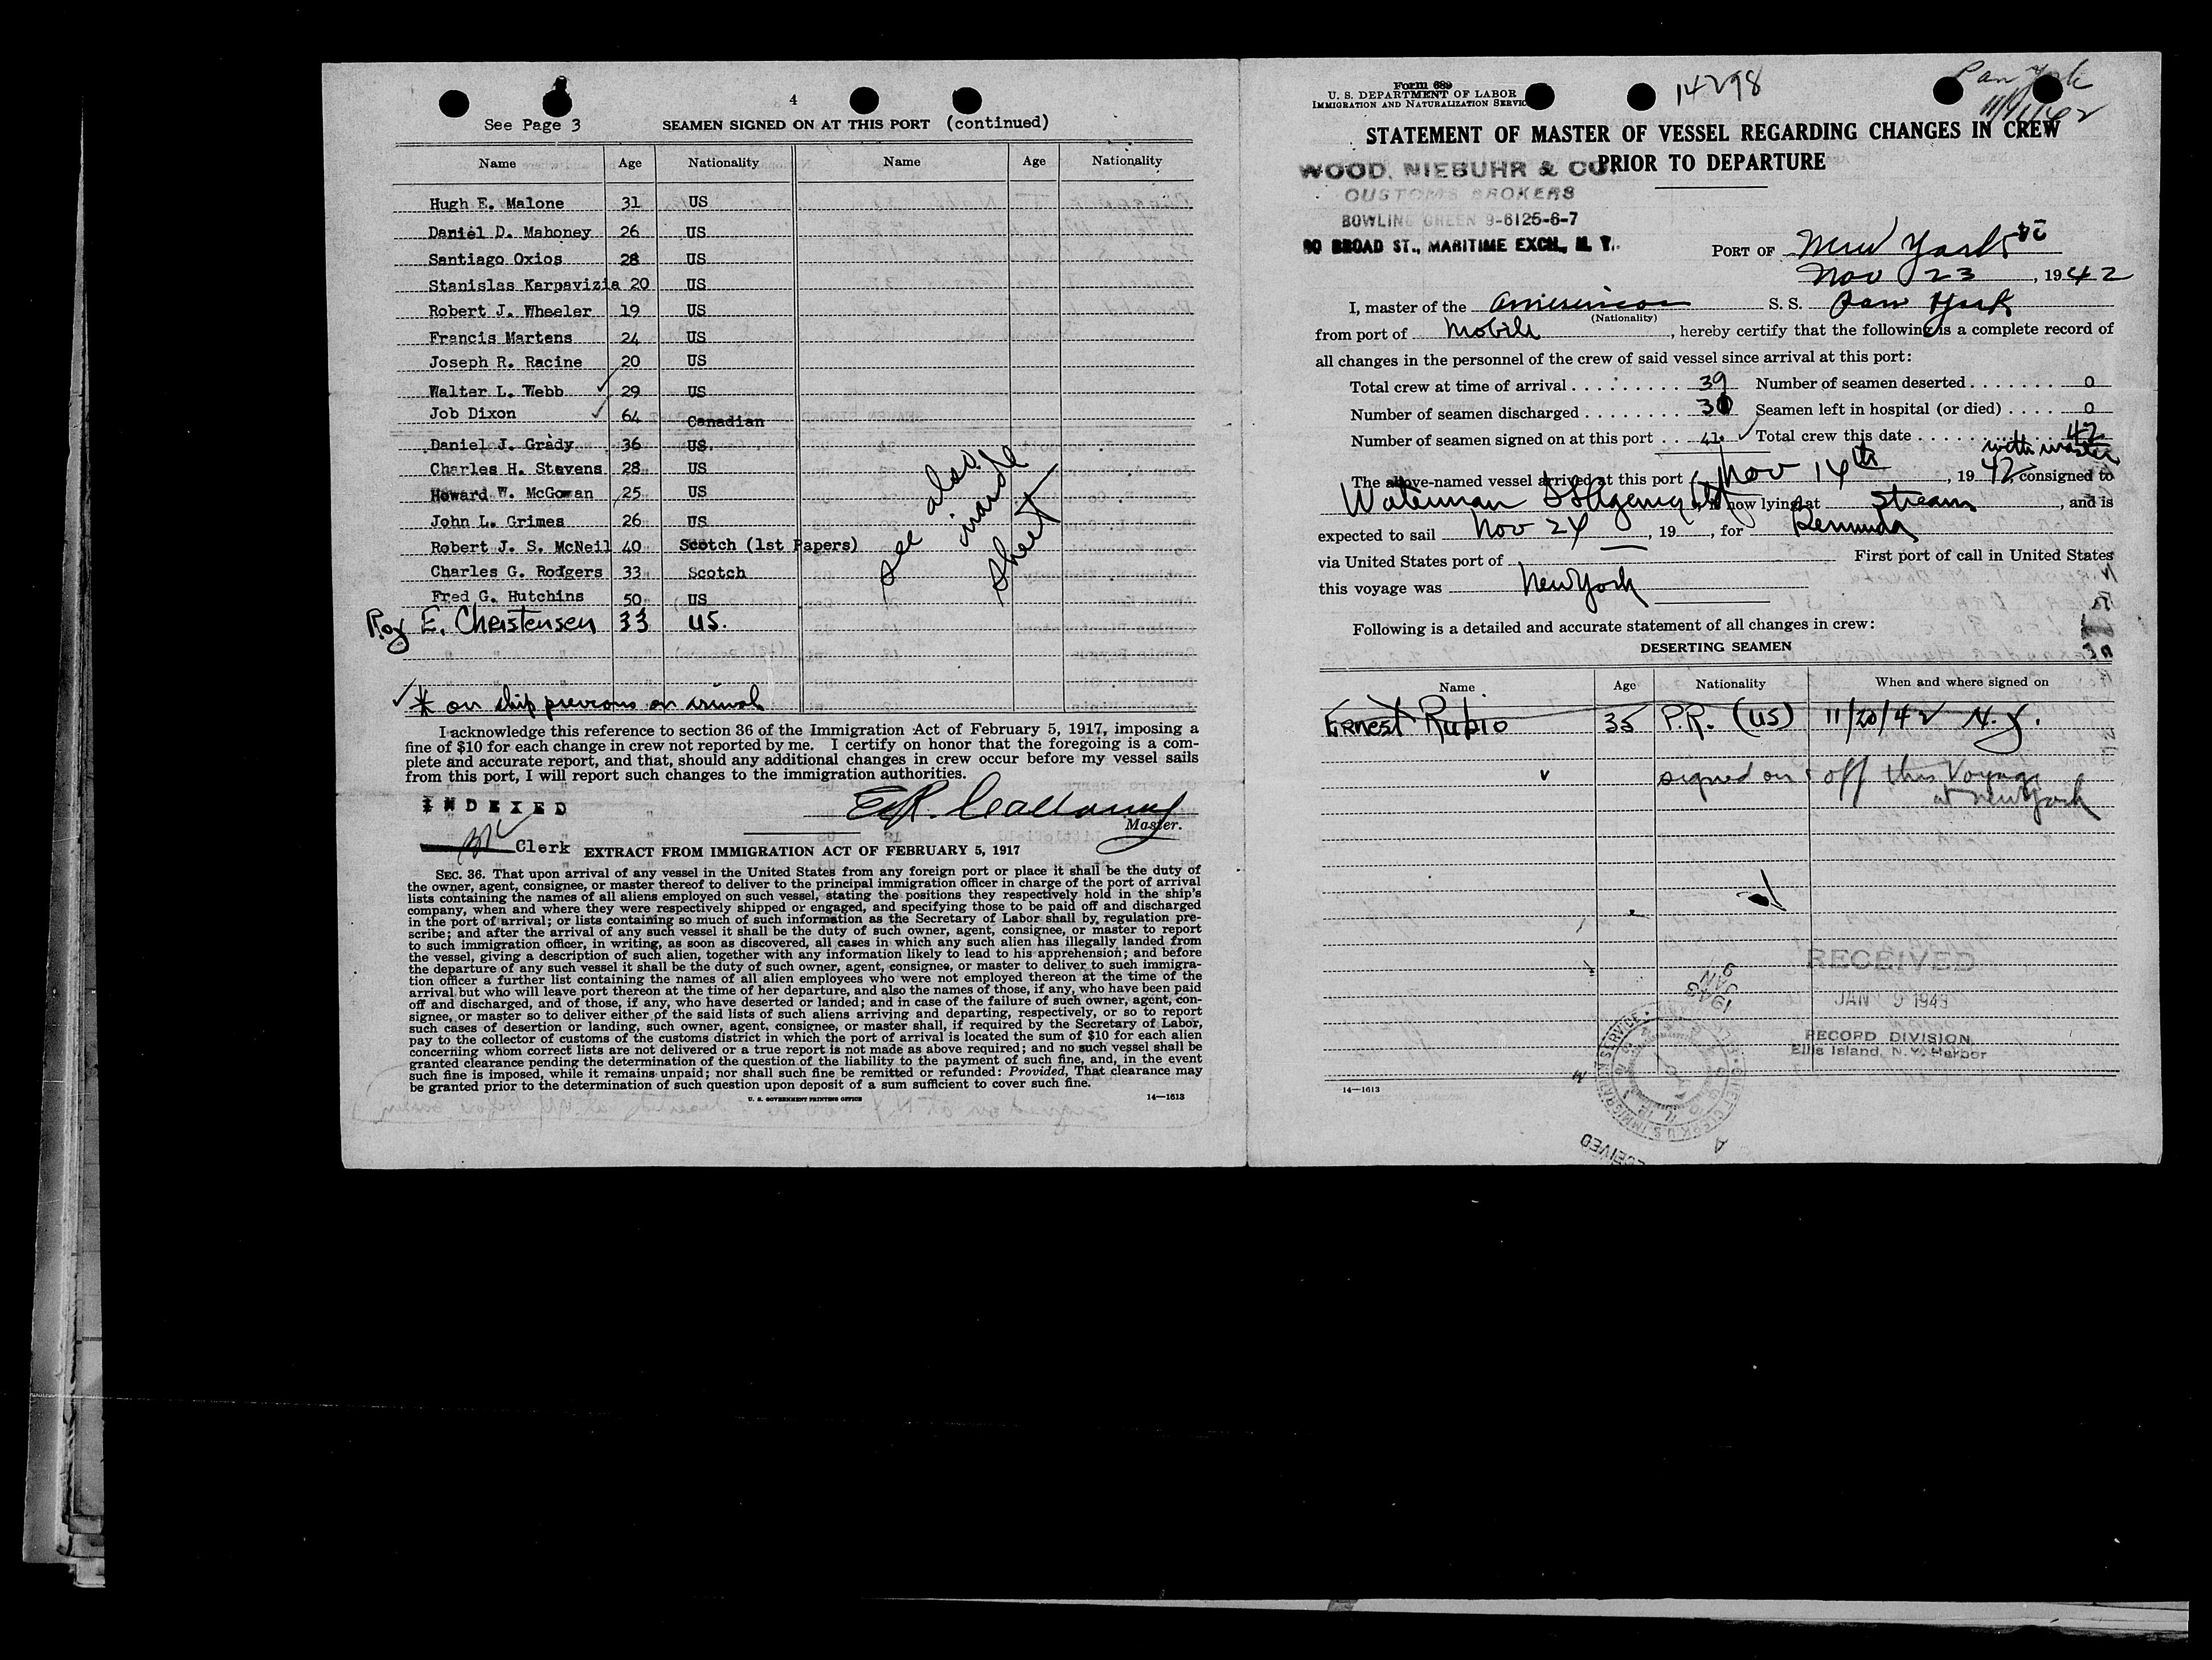 4
See Page 3 SEAMEN SIGNED ON AT THIS PORT (continued)
Name Age Nationality Name Age Nationality
Hugh E. Malone 31 US
Daniel D. Mahoney 26 US
Santiago Oxios 28 US
Stanislas Karpavizia 20 US
Robert J. Wheeler 19 US
Francis Martens 24 US
Joseph R. Racine 20 US
Walter L. Webb ✓ 29 US
Job Dixon ✓ 64 Canadian
Daniel J. Grady 36 US
Charles H. Stevens 28 US
Howard W. McGowan 25 US
John L. Grimes 26 US
Robert J. S. McNeil 40 Scotch (1st Papers)
Charles G. Rodgers 33 Scotch
Fred G. Hutchins 50 US
Roy E. Christensen 33 US.
see also
inside
sheet
✓ * on ship previous on arrival
I acknowledge this reference to section 36 of the Immigration Act of February 5, 1917, imposing a
fine of $10 for each change in crew not reported by me. I certify on honor that the foregoing is a com-
plete and accurate report, and that, should any additional changes in crew occur before my vessel sails
from this port, I will report such changes to the immigration authorities.
INDEXED
E.R. Callaway
Master.
Clerk
EXTRACT FROM IMMIGRATION ACT OF FEBRUARY 5, 1917
SEC. 36. That upon arrival of any vessel in the United States from any foreign port or place it shall be the duty of
the owner, agent, consignee, or master thereof to deliver to the principal immigration officer in charge of the port of arrival
lists containing the names of all aliens employed on such vessel, stating the positions they respectively hold in the ship's
company, when and where they were respectively shipped or engaged, and specifying those to be paid off and discharged
in the port of arrival; or lists containing so much of such information as the Secretary of Labor shall by regulation pre-
scribe; and after the arrival of any such vessel it shall be the duty of such owner, agent, consignee, or master to report
to such immigration officer, in writing, as soon as discovered, all cases in which any such alien has illegally landed from
the vessel, giving a description of such alien, together with any information likely to lead to his apprehension; and before
the departure of any such vessel it shall be the duty of such owner, agent, consignee, or master to deliver to such immigra-
tion officer a further list containing the names of all alien employees who were not employed thereon at the time of the
arrival but who will leave port thereon at the time of her departure, and also the names of those, if any, who have been paid
off and discharged, and of those, if any, who have deserted or landed; and in case of the failure of such owner, agent, con-
signee, or master so to deliver either of the said lists of such aliens arriving and departing, respectively, or so to report
such cases of desertion or landing, such owner, agent, consignee, or master shall, if required by the Secretary of Labor,
pay to the collector of customs of the customs district in which the port of arrival is located the sum of $10 for each alien
concerning whom correct lists are not delivered or a true report is not made as above required; and no such vessel shall be
granted clearance pending the determination of the question of the liability to the payment of such fine, and, in the event
such fine is imposed, while it remains unpaid; nor shall such fine be remitted or refunded: Provided, That clearance may
be granted prior to the determination of such question upon deposit of a sum sufficient to cover such fine.
U. S. GOVERNMENT PRINTING OFFICE 14—1613
Form 689
U. S. DEPARTMENT OF LABOR
IMMIGRATION AND NATURALIZATION SERVICE
14298
Pan York
STATEMENT OF MASTER OF VESSEL REGARDING CHANGES IN CREW
PRIOR TO DEPARTURE
WOOD, NIEBUHR & CO.
CUSTOMS BROKERS
BOWLING GREEN 9-6125-6-7
80 BROAD ST., MARITIME EXCH., N. Y.
PORT OF New York
Nov 23, 1942
I, master of the American S. S. Pan York
(Nationality)
from port of Mobile, hereby certify that the following is a complete record of
all changes in the personnel of the crew of said vessel since arrival at this port:
Total crew at time of arrival 39 Number of seamen deserted 0
Number of seamen discharged Seamen left in hospital (or died) 0
Number of seamen signed on at this port 41 ✓ Total crew this date 42
with master
The above-named vessel arrived at this port Nov 14th, 1942, consigned to
Waterman SS Agency, is now lying at stream, and is
expected to sail Nov 24, 19, for Bermuda
via United States port of First port of call in United States
this voyage was New York
Following is a detailed and accurate statement of all changes in crew:
DESERTING SEAMEN
Name Age Nationality When and where signed on
Ernest Rubio 35 P.R. (US) 11/20/42 N.Y.
signed on & off this Voyage
at New York
RECEIVED
JAN 9 1943
RECORD DIVISION
Ellis Island, N. Y. Harbor
JAN 9
1943
RECEIVED
14—1613